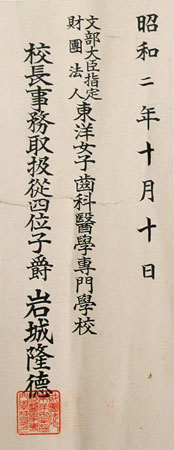 昭和二年十月十日
文部大臣指定
財團法人
東洋女子齒科醫學專門學校
校長事務取扱從四位子爵 岩城隆德